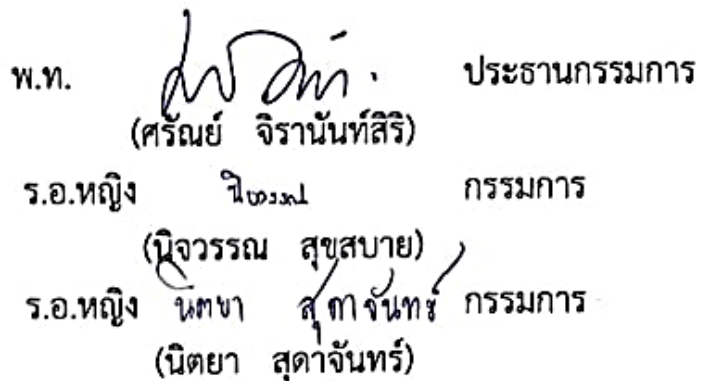 พ.ท. ประธานกรรมการ
(ศรัณย์ จิรานันท์สิริ)
ร.อ.หญิง นิจวรรณ กรรมการ
(นิจวรรณ สุขสบาย)
ร.อ.หญิง นิตยา สุดาจันทร์ กรรมการ
(นิตยา สุดาจันทร์)